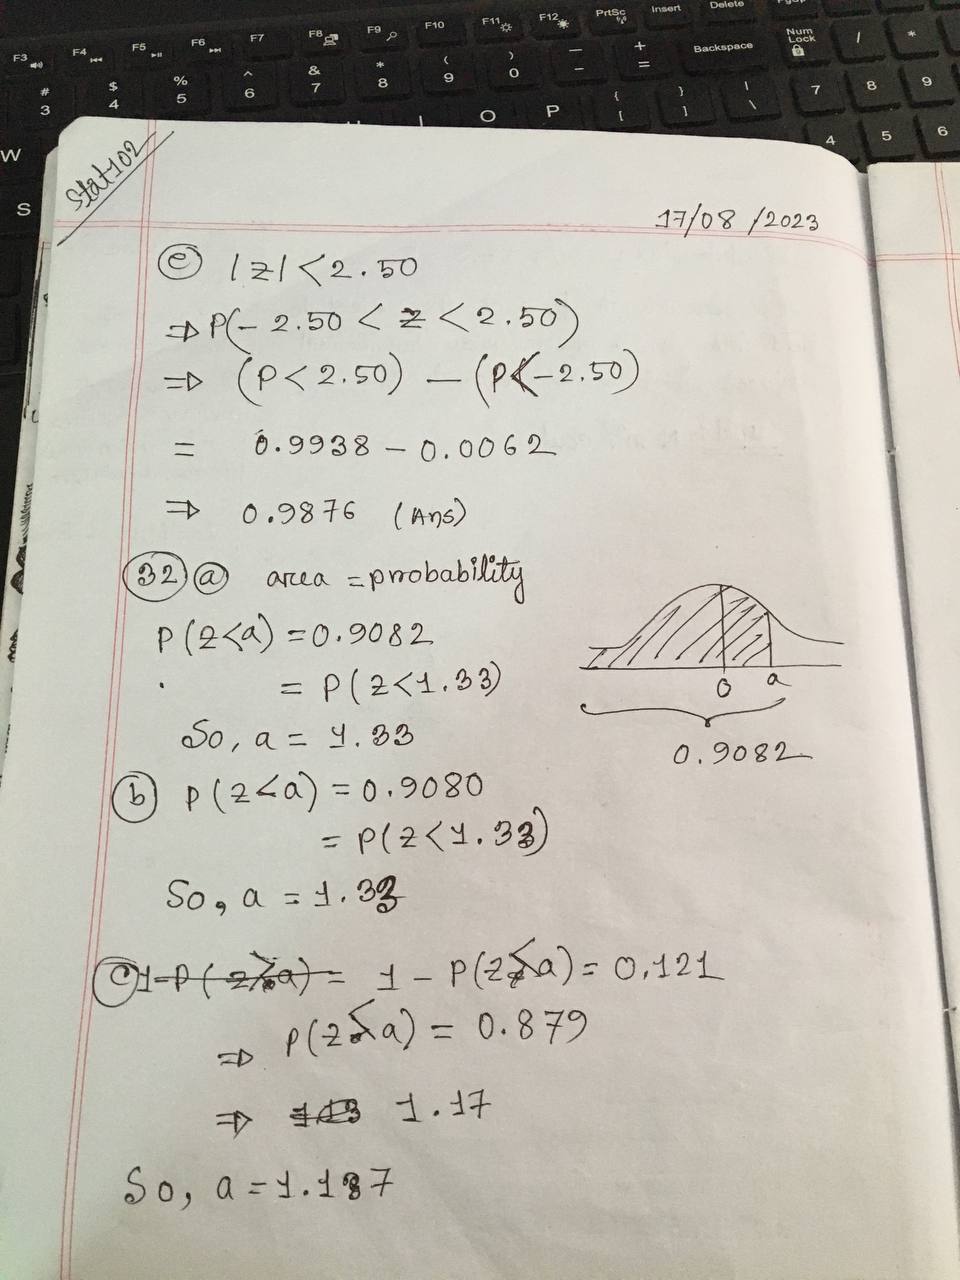 F3 F4 F5 F6 F7 F8 F9 F10 F11 F12 PrtSc Insert Delete
# 3 $ 4 % 5 ^ 6 & 7 * 8 ( 9 ) 0 _ - + = Backspace Num Lock / *
W O P { [ } ] | \ 7 8 9
S 4 5 6
Stat102
17/08/2023
(e) |z| < 2.50
⇒ P(- 2.50 < z < 2.50)
⇒ (P < 2.50) - (P < -2.50)
= 0.9938 - 0.0062
⇒ 0.9876 (Ans)
(32) (a) area = probability
P(z<a) = 0.9082
= P(z<1.33)
So, a = 1.33
0 a
0.9082
(b) P(z<a) = 0.9080
= P(z<1.33)
So, a = 1.33
(c) 1-P(z>a) = 1 - P(z<a) = 0.121
⇒ P(z<a) = 0.879
⇒ 1.17
So, a = 1.17